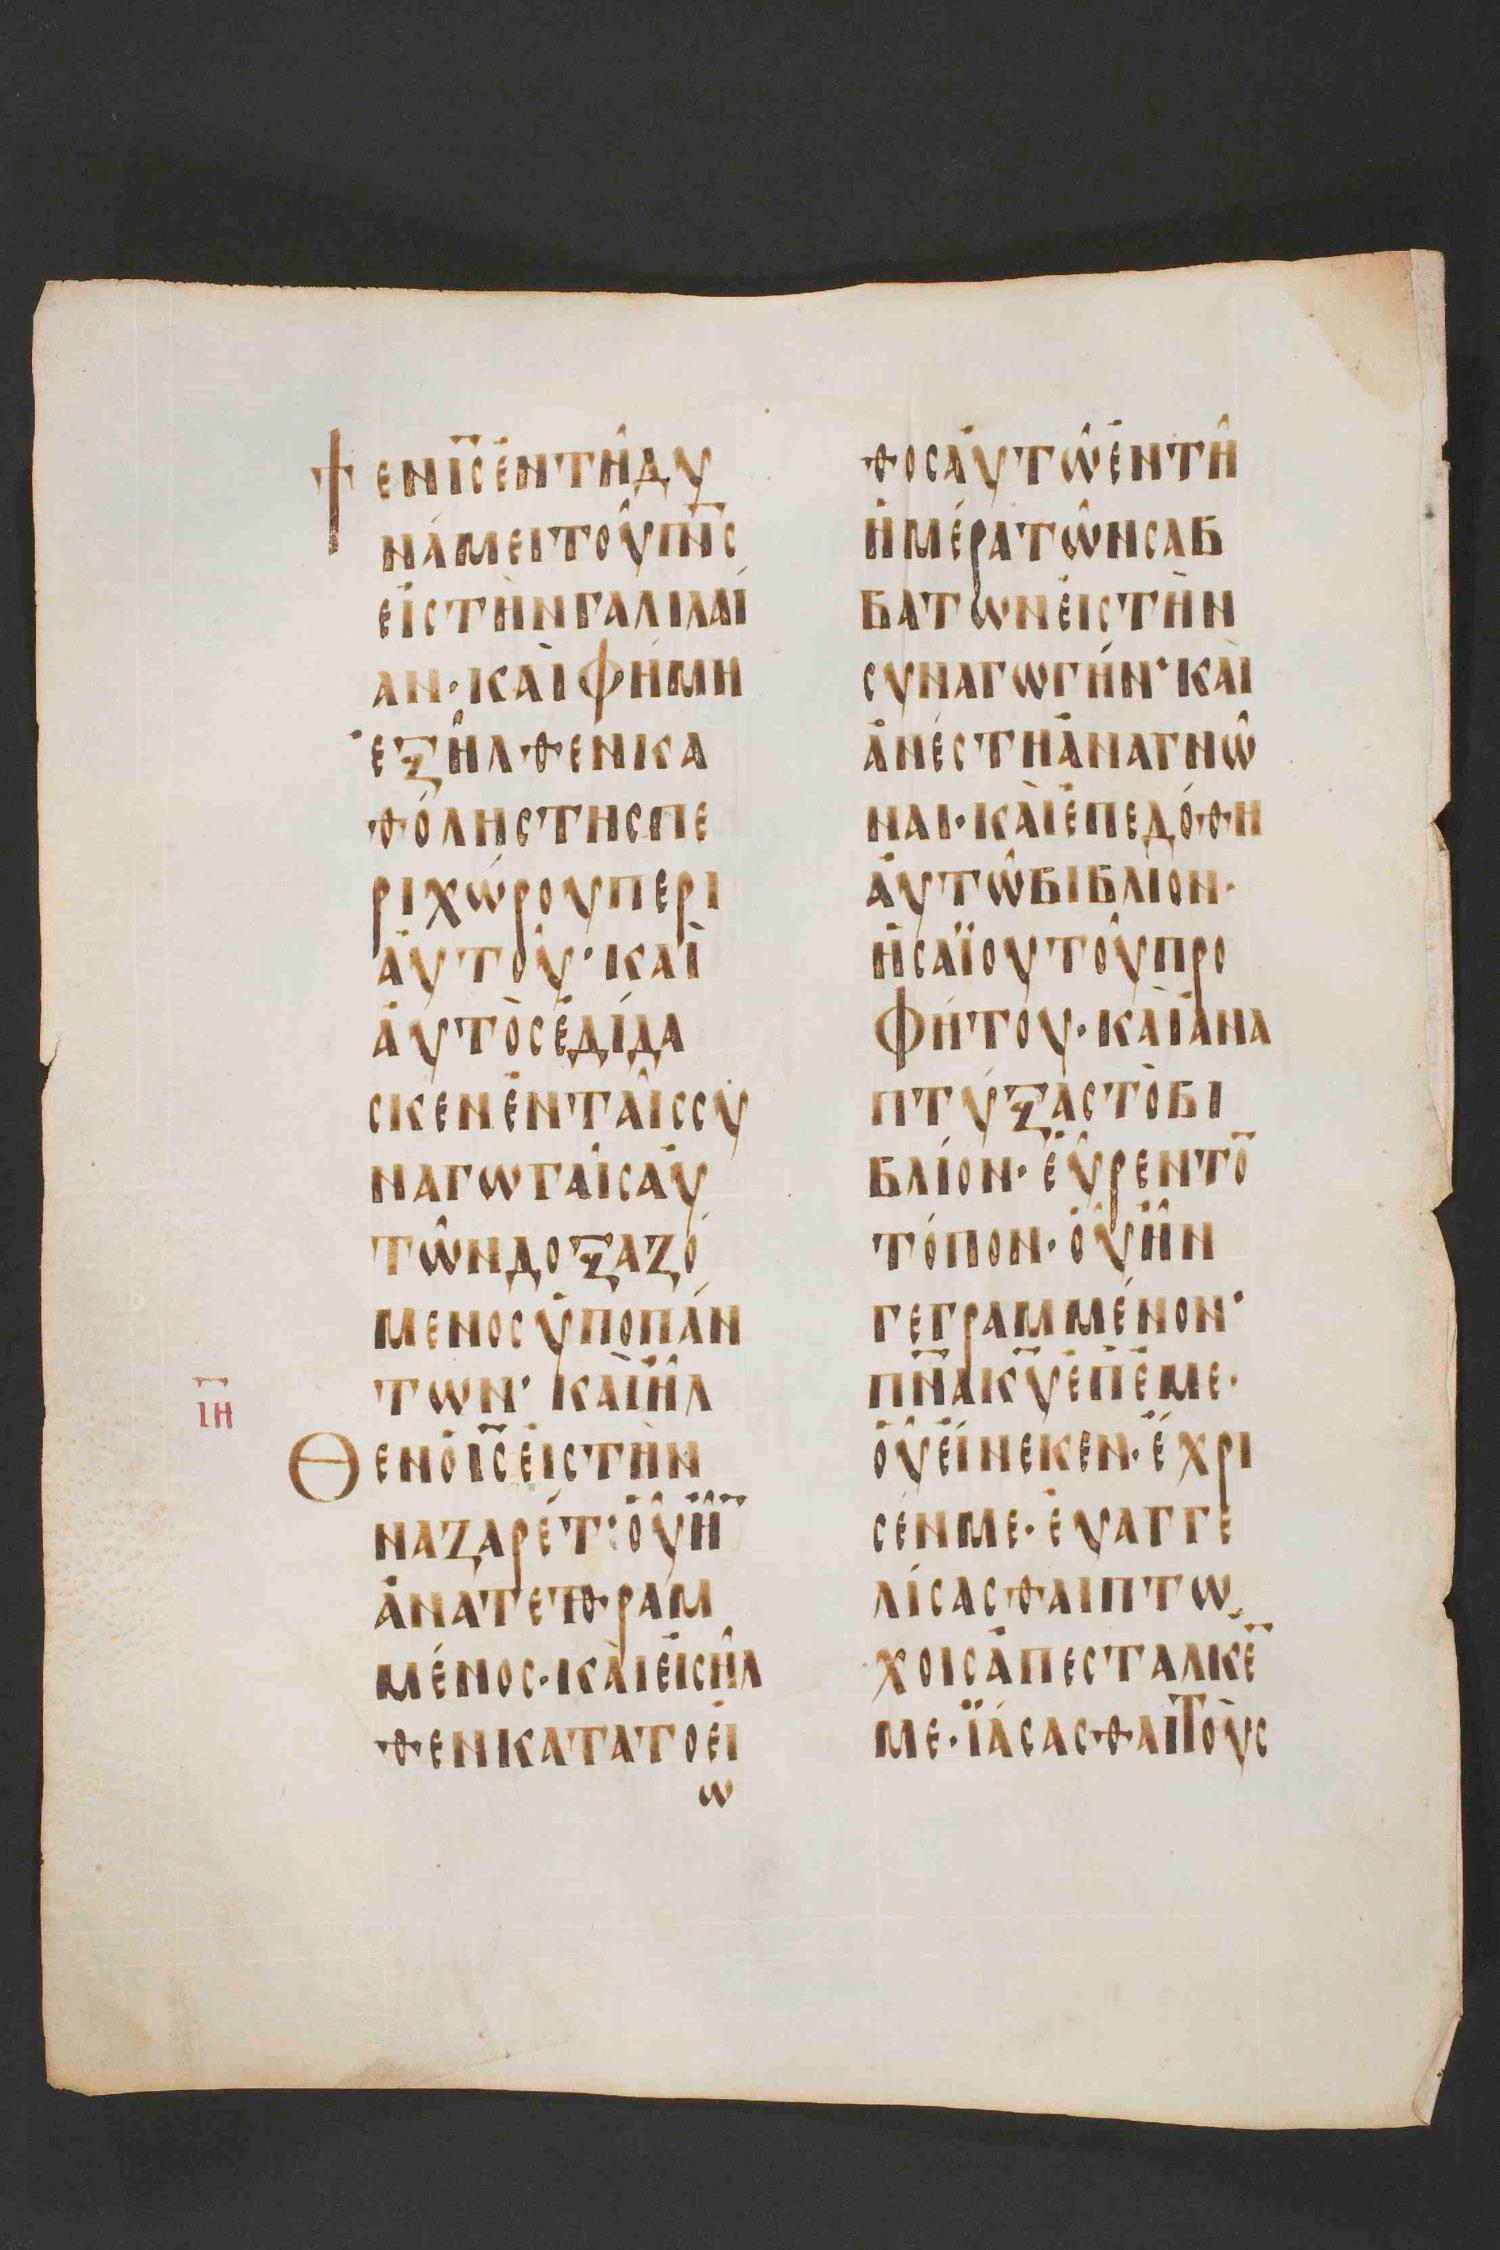 ψεν ι̅ς̅ ἐν τῆ δυ
νάμει τοῦ π̅ν̅ς̅
εἰς τὴν γαλιλαί
αν· καὶ φήμη
ἐξῆλθεν κα
θόλης της πε
ριχώρου περι
ἀυτοῦ· καὶ
ἀυτὸς ἐδίδα
σκεν ἐν ταῖς συ
ναγωγαῖς ἀυ
τῶν δοξαζό
μενος ὑπο πάν
των· καὶ ἦλ
ι̅η̅
Θεν ὁ ι̅ς̅ ἐις τὴν
ναζαρέτ· οὗ ἦ̅
ἀνατεθραμ
μένος· καὶ ἐισῆλ
θεν κατα το ἐι
ω
θος ἀυτῶ ἐν τῆ
ἡμέρα τῶν σαβ
βατων ἐις τὴν
συναγωγήν· καὶ
ἀνέστη ἀναγνῶ
ναι· καὶ ἐπεδόθη
ἀυτῶ βιβλίον·
ἠσαϊου τοῦ προ
φήτου· καὶ ἀνα
πτύξας τὸ βι
βλίον· ἕυρεν το̅
τόπον· ὁῦ ἦν
γεγραμμένον·
π̅ν̅α̅ κ̅υ̅ ἐπ ἐμε·
ὁῦ ἕινεκεν· ἔχρι
σέν με· ἐυαγγε
λίσασθαι πτω
χοις ἀπεσταλκε̅
με· ϊάσασθαι τοὺς